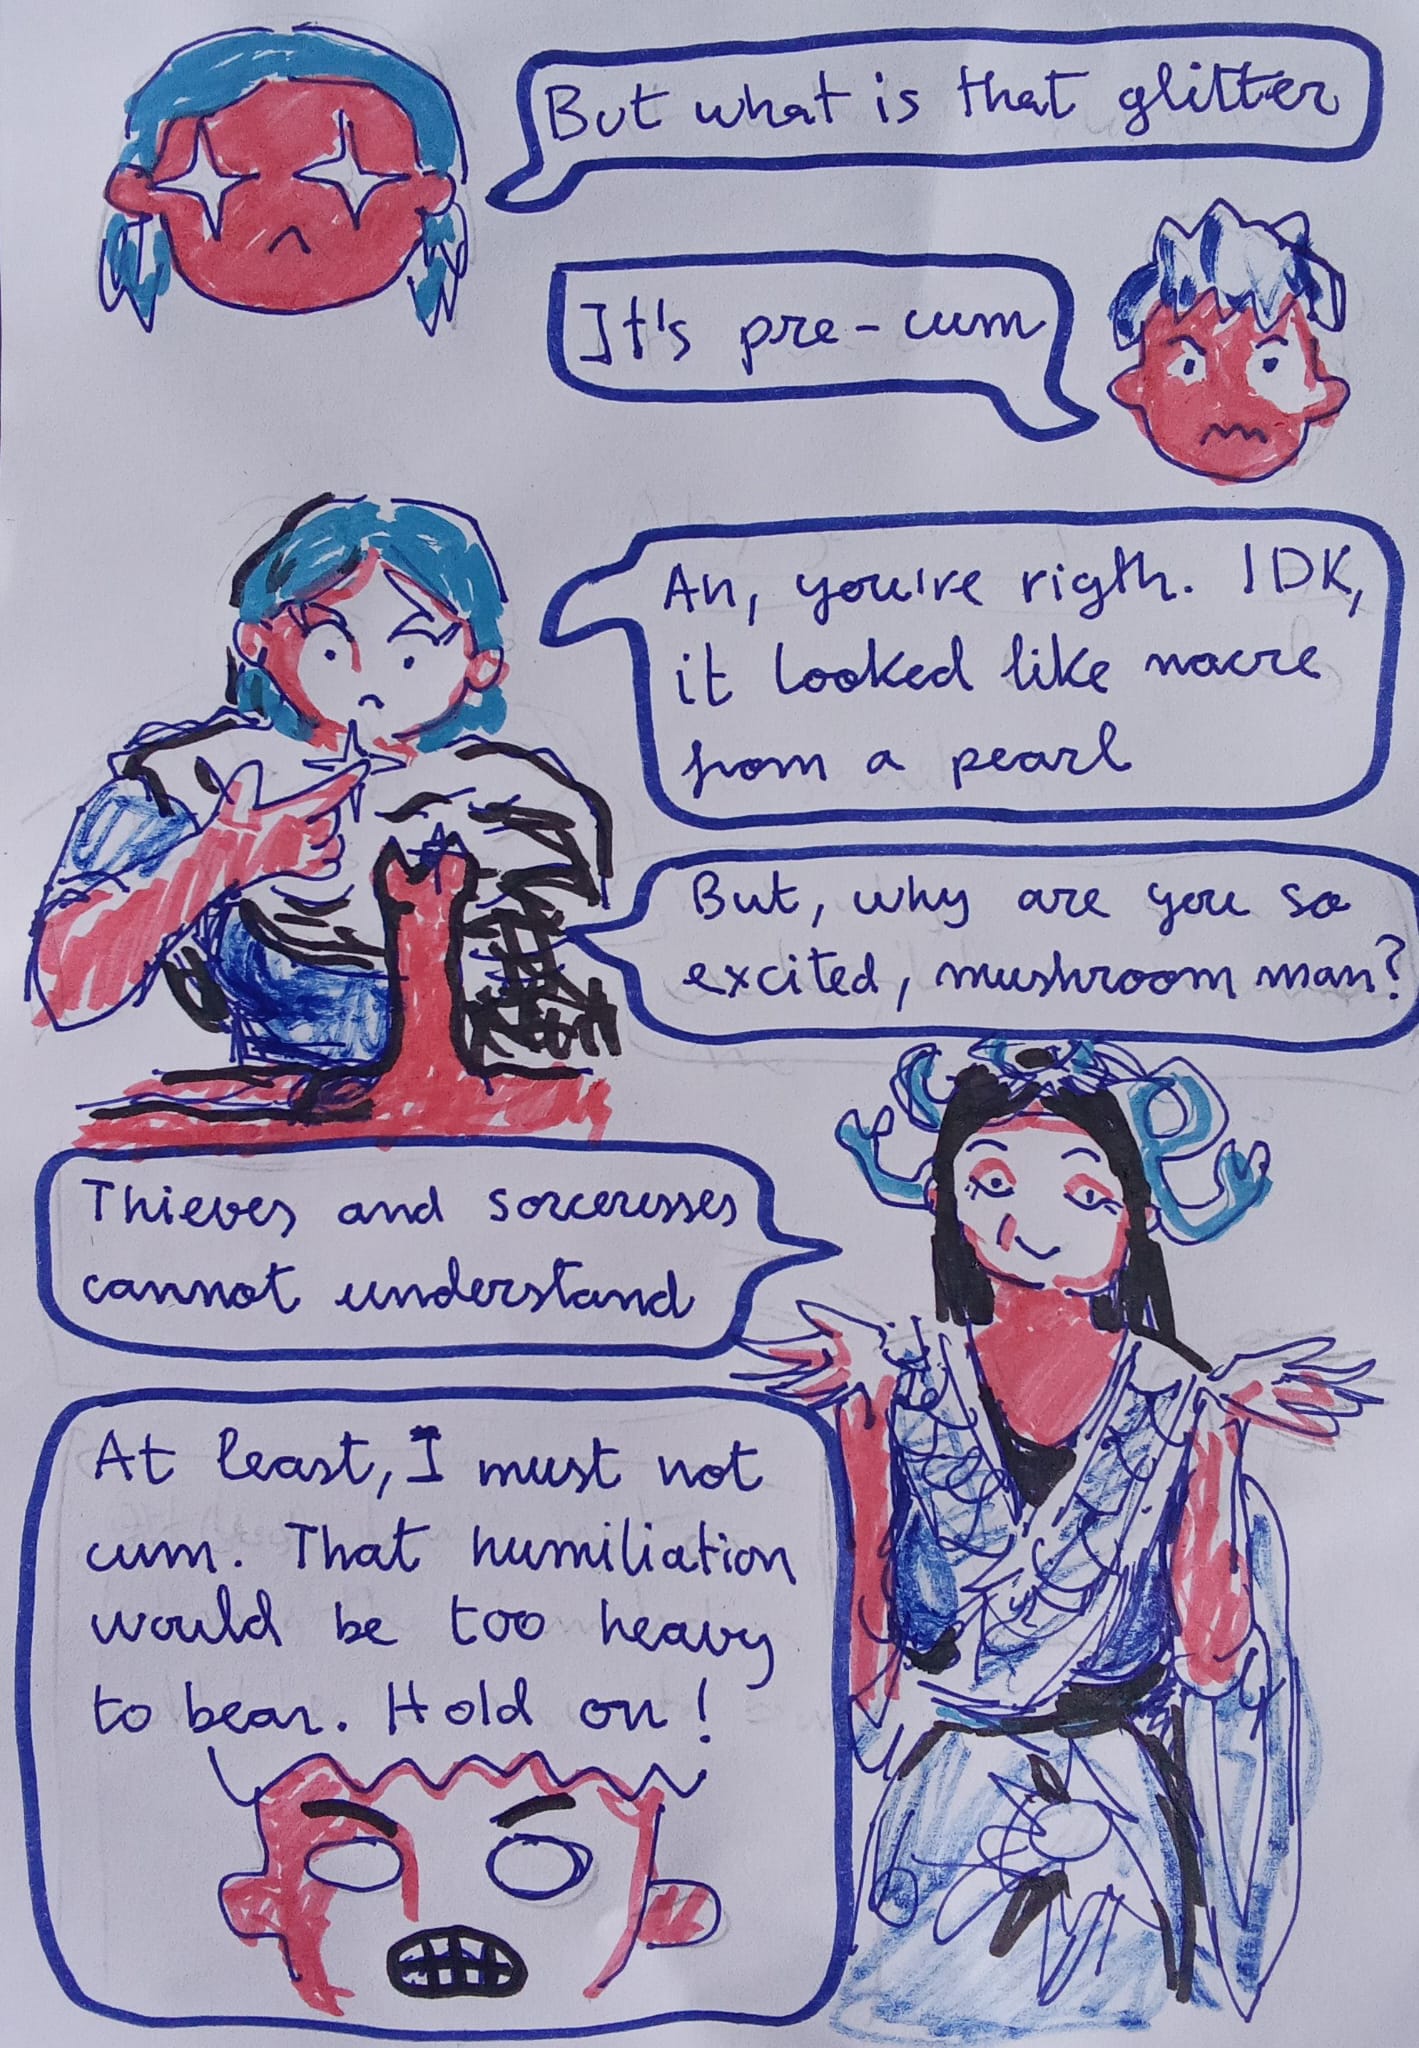 But what is that glitter
It's pre-cum
Ah, you're rigth. IDK,
it looked like nacre
from a pearl
But, why are you so
excited, mushroom man?
Thieves and sorceresses
cannot understand
At least, I must not
cum. That humiliation
would be too heavy
to bear. Hold on!